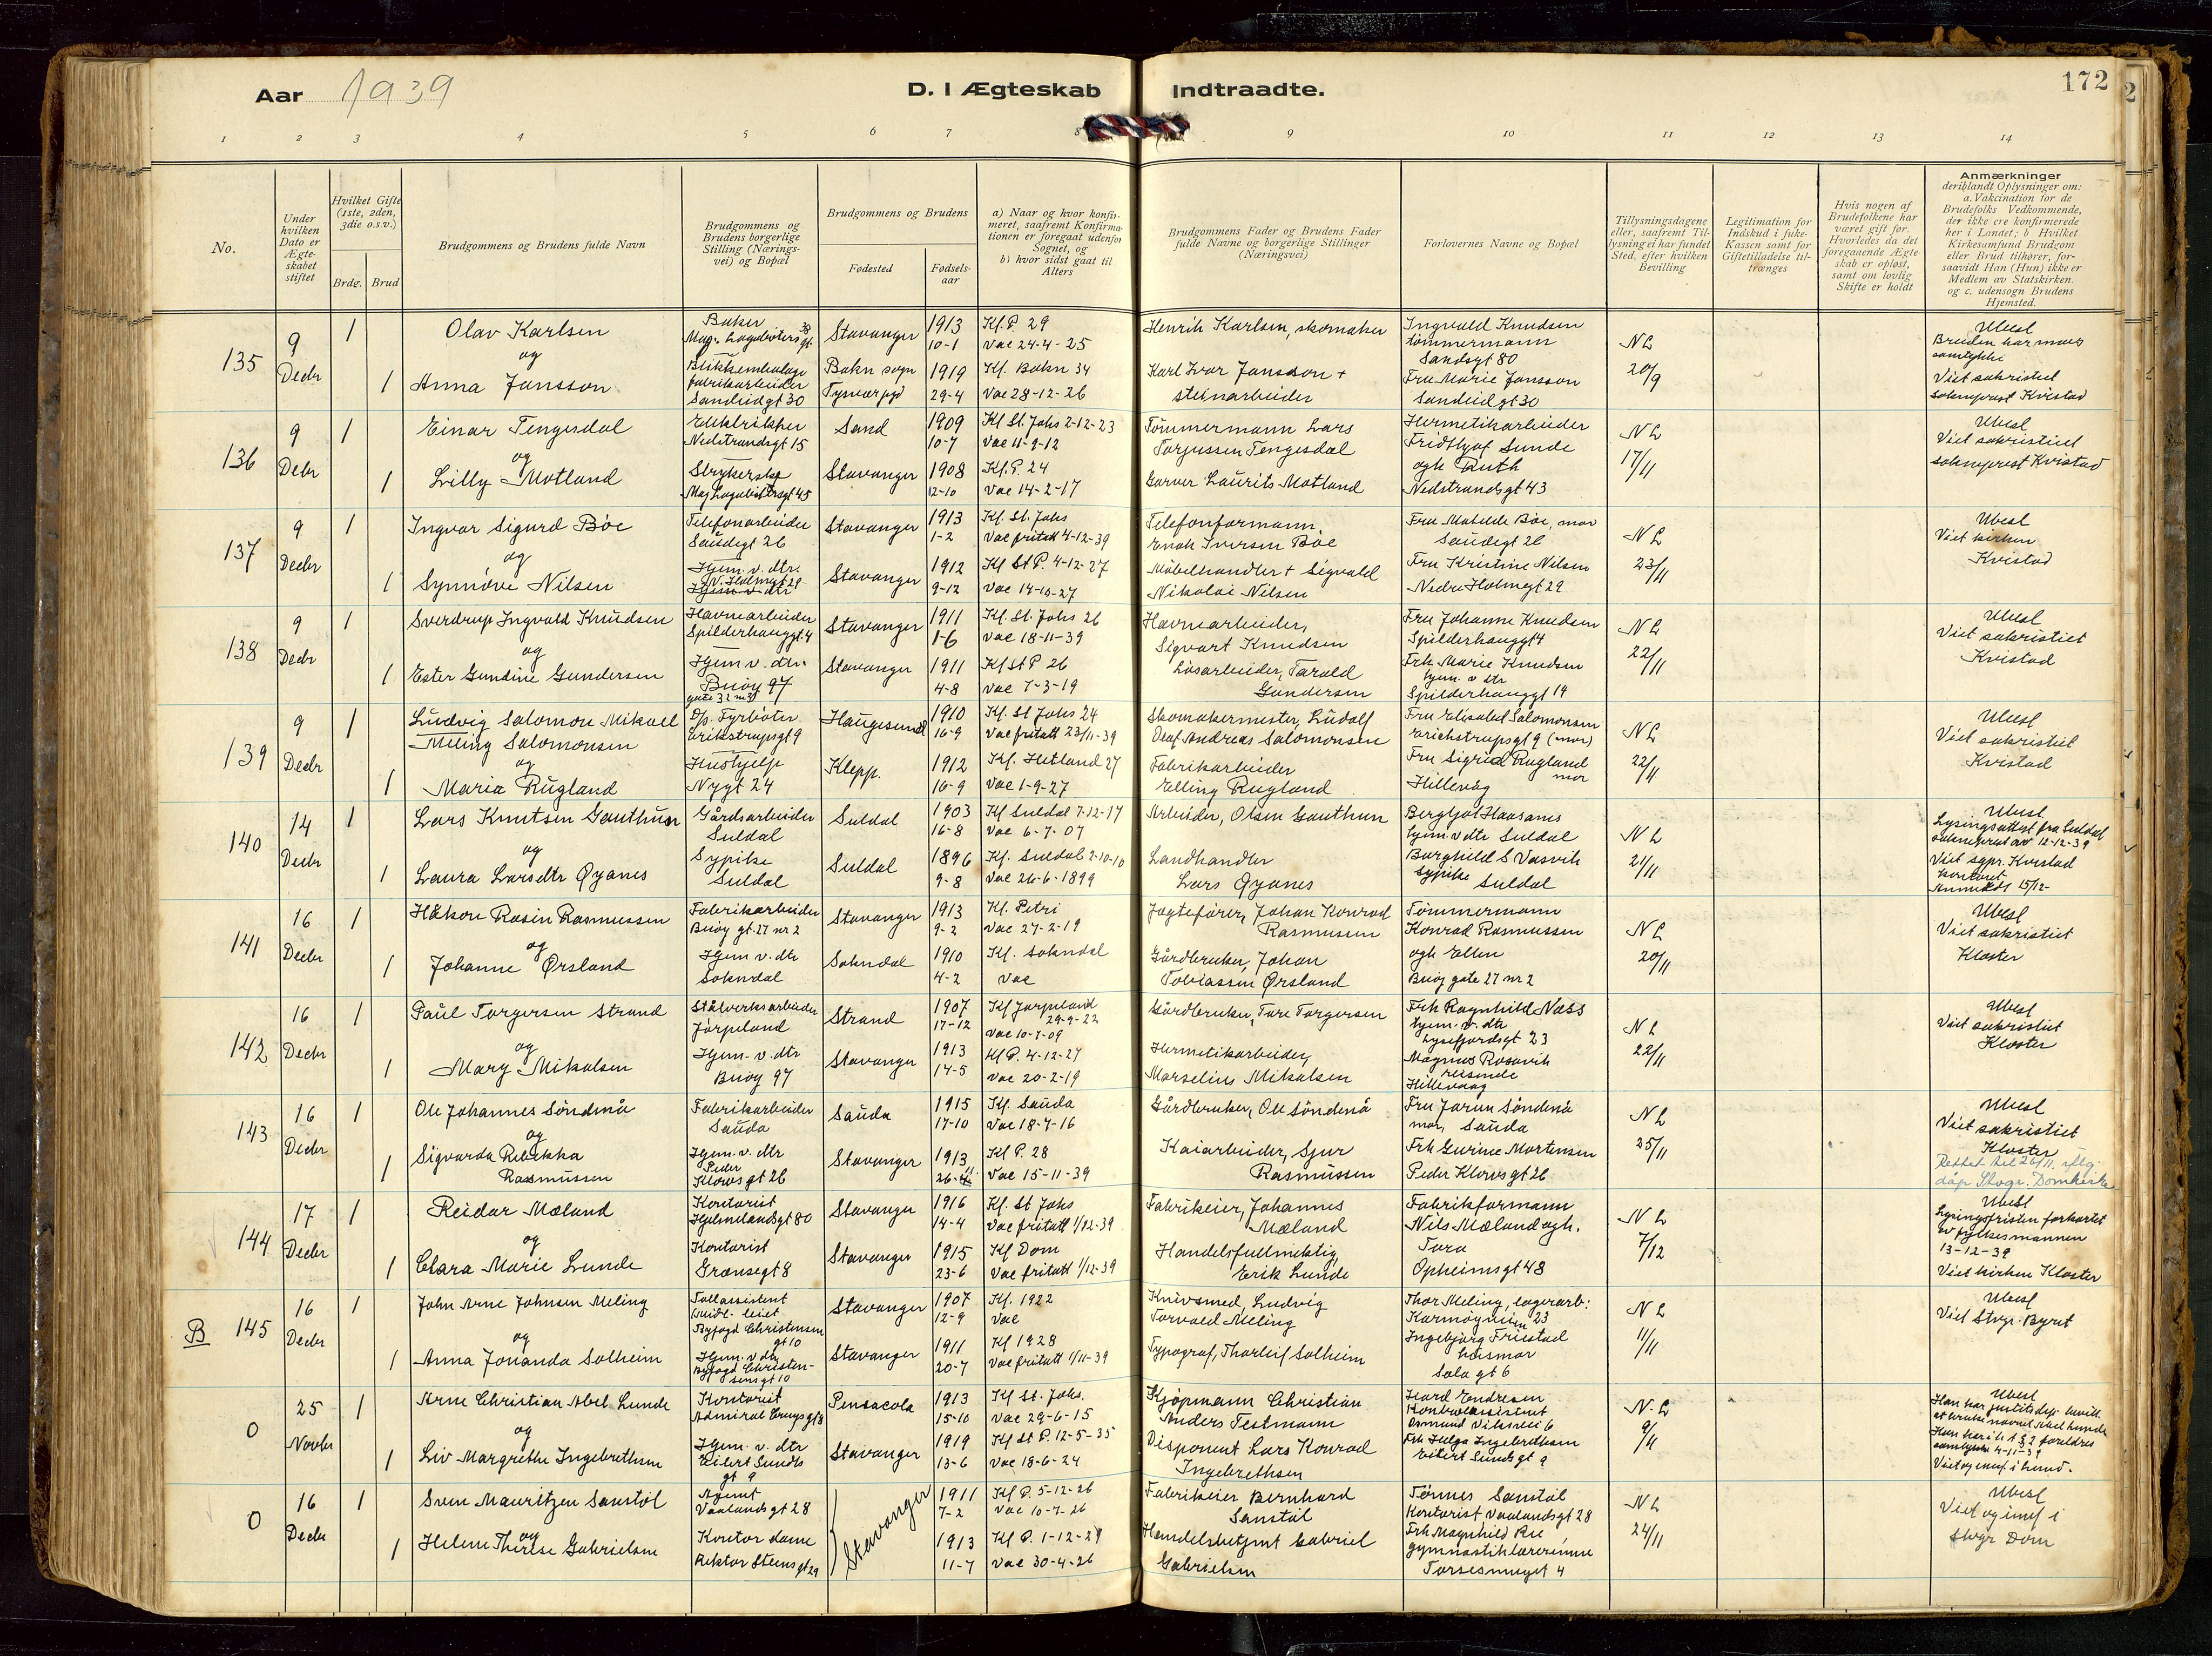 Aar 1939
D. I Ægteskab Indtraadte.
172
1 2 3 4 5 6 7 8 9 10 11 12 13 14
No.
Under hvilken Dato er Ægteskabet stiftet
Hvilket Gifte (1ste, 2den, 3die o.s.v.)
Brdg. Brud
Brudgommens og Brudens fulde Navn
Brudgommens og Brudens borgerlige Stilling (Næringsvei) og Bopæl
Brudgommens og Brudens
Fødested
Fødselsaar
a) Naar og hvor konfirmeret, saafremt Konfirmationen er foregaat udenfor Sognet, og
b) hvor sidst gaat til Alters
Brudgommens Fader og Brudens Fader fulde Navne og borgerlige Stillinger (Næringsvei)
Forlovernes Navne og Bopæl
Tillysningsdagene eller, saafremt Tillysning ei har fundet Sted, efter hvilken Bevilling
Legitimation for Indskud i fuke-Kassen samt for Giftetilladelse tiltrænges
Hvis nogen af Brudefolkene har været gift før. Hvorledes da det foregaaende Ægteskab er opløst, samt om lovlig Skifte er holdt
Anmærkninger
deriblandt Oplysninger om: a. Vakcination for de Brudefolks Vedkommende, der ikke ere konfirmerede her i Landet; b Hvilket Kirkesamfund Brudgom eller Brud tilhører, forsaavidt Han (Hun) ikke er Medlem av Statskirken. og c. udensogn Brudens Hjemsted.
135
9 Decbr
1
Olav Karlsen
og
1
Anna Jansson
Baker
Stavanger
1913
10-1
Kf. P. 29
Vac 24-4-25
fabrikarbeider
Sandeidgt 30
Bokn sogn
1919
29-4
Kf. Bokn 34
Vac 28-12-26
Henrik Karlsen, skomaker
Karl Ivar Jansson +
steinarbeider
Ingvald Knudsen
tømmermann
Sandsgt 80
Fru Marie Jansson
Sandeidgt 30
NL
20/9
Ubesl
Bruden har mors
samtykke
Viet sakristiet
sokneprest Kvistad
136
9 Decbr
1
Einar Tengesdal
og
1
Lilly Motland
Elektriker
Nedstrandsgt 15
Sand
1909
10-7
Kf St. Johs 2-12-23
Vac 11-9-12
Strykerske
Stavanger
1908
12-10
Kf. P. 24
Vac 14-2-17
Tømmermann Lars
Torjussen Tengesdal
Garver Laurits Motland
Hermetikarbeider
Fridtjof Sunde
ogh Ruth
Nedstrandsgt 43
NL
17/11
Ubesl
Viet sakristiet
sokneprest Kvistad
137
9 Decbr
1
Ingvar Sigurd Bøe
og
1
Synnøve Nilsen
Telefonarbeider
Saudegt 26
Stavanger
1913
1-2
Kf. St. Johs
Vac fritatt 4-12-39
Hjem. v. dtr.
N. Holmegt 29
Stavanger
1912
9-12
Kf St P. 4-12-27
Vac 14-10-27
Telefonformann
Enok Iversen Bøe
Møbelhandler + Sigvald
Nikolai Nilsen
Fru Matilde Bøe, mor
Saudegt 26
Fru Kristine Nilsen
Nedre Holmegt 29
NL
23/11
Ubesl
Viet kirken
Kvistad
138
9 Decbr
1
Sverdrup Ingvald Knudsen
og
1
Ester Gundine Gundersen
Havnearbeider
Spilderhauggt. 4
Stavanger
1911
1-6
Kf. St. Johs 26
Vac 18-11-39
Hjem v. dtr.
Buøy 97
Stavanger
1911
4-8
Kf St P 26
Vac 7-3-19
Havnearbeider,
Sigvart Knudsen
Løsarbeider, Tarald
Gundersen
Fru Johanne Knudsen
Spilderhauggt 4
Frk Marie Knudsen
hjem. v dtr
Spilderhauggt 14
NL
22/11
Ubesl
Viet sakristiet
Kvistad
139
9 Decbr
1
Ludvig Salomon Mikael
Meling Salomonsen
og
1
Maria Rugland
D/s. Fyrbøter
Erikstrupsgt 9
Haugesund
1910
16-9
Kf. St Johs 24
Vac fritatt 23/11-39
Hushjelp
Nygt 24
Klepp.
1912
16-9
Kf. Hetland 27
Vac 1-9-27
Skomakermester, Ludolf
Olaf Andreas Salomonsen
Fabrikarbeider
Elling Rugland
Fru Elisabet Salomonsen
Erichstrupsgt 9 (mor)
Fru Sigrid Rugland
mor
Hillevåg
NL
22/11
Ubesl
Viet sakristiet
Kvistad
140
14 Decbr
1
Lars Knutsen Gauthun
og
1
Laura Larsdtr Øyanes
Gårdsarbeider
Suldal
Suldal
1903
16-8
Kf Suldal 7-12-17
Vac 6-7-07
Sypike
Suldal
Suldal
1896
9-8
Kf. Suldal 2-10-10
Vac 26-6-1899
Arbeider, Olsen Gauthun
Landhandler
Lars Øyanes
Bergljot Havsanes
hjem. v dtr Suldal
Borghild S Vasvik
sypike Suldal
NL
21/11
Ubesl.
Lysingsattest fra Suldal
sokneprest av 12-12-39
Viet sgpr. Kvistad
kontoret
Anmeldt 15/12-
141
16 Decbr
1
Håkon Rosin Rasmussen
og
1
Johanne Ørsland
Fabrikarbeider
Buøy gt. 27 nr 2
Stavanger
1913
9-2
Kf. Petri
Vac 27-2-19
Hjem v. dtr
Sokndal
Sokndal
1910
4-2
Kf. Sokndal
Vac
Jagtefører, Johan Konrad
Rasmussen
Gårdbruker, Johan
Tobiassen Ørsland
Tømmermann
Konrad Rasmussen
ogh Ellen
Buøy gate 27 nr 2
NL
20/11
Ubesl
Viet sakristiet
Kloster
142
16 Decbr
1
Paul Torgersen Strand
og
1
Mary Mikalsen
Stålverksarbeider
Jørpeland
Strand
1907
17-12
Kf Jørpeland
29-9-22
Vac 10-7-09
Hjem. v. dtr
Buøy 97
Stavanger
1913
14-5
Kf P. 4-12-27
Vac 20-2-19
Gårdbruker, Tore Torgersen
Hermetikarbeider,
Marselius Mikalsen
Frk Ragnhild Næss
hjem. v. dtr
Lysefjordsgt 23
Magnus Rosavik
reisende
Hillevaag
NL
22/11
Ubesl
Viet sakristiet
Kloster
143
16 Decbr
1
Ole Johannes Søndenå
og
1
Sigvarda Rebekka
Rasmussen
Fabrikarbeider
Sauda
Sauda
1915
17-10
Kf. Sauda
Vac 18-7-16
Hjem. v. dtr
Peder
Klowsgt 26
Stavanger
1913
Kf P. 28
Vac 15-11-39
Gårdbruker, Ole Søndenå
Kaiarbeider, Sjur
Rasmussen
Fru Jorun Søndenå
mor, Sauda
Frk Gurine Mortensen
Peder Klowsgt 26
NL
25/11
Ubesl
Viet sakristiet
Kloster
Rettet til 26/11. iflg.
dåp Stvgr. Domkirke
144
17 Decbr
1
Reidar Mæland
og
1
Clara Marie Lunde
Kontorist
Hjelmelandsgt 80
Stavanger
1916
14-4
Kf. St Johs
Vac fritatt 1/12-39
Kontorist
Grensegt 8
Stavanger
1915
23-6
Kf Dom
Vac fritatt 1/12-39
Fabrikeier, Johannes
Mæland
Handelsfullmektig
Erik Lunde
Fabrikformann
Nils Mæland ogh.
Tora
Opheimsgt 48
NL
7/12
Ubesl
Lysingsfristen forkortet
av fylkesmannen
13-12-39
Viet kirken Kloster
B 145
16 Decbr
1
John Arne Johnsen Meling
og
1
Anna Jonanda Solheim
Tollassistent
Byfogd Christensens
gt 10
Stavanger
1907
12-9
Kf. 1922
Vac
Hjem. v dtr
Byfogd Christensens
gt 10
Stavanger
1911
20-7
Kf 1928
Vac fritatt 1/11-39
Knivsmed, Ludvig
Torvald Meling
Typograf, Thorleif Solheim
Thor Meling, lagerarb:
Karmøygt 23
Ingebjørg Friestad
husmor
Sola gt 6
NL
11/11
Ubesl
Viet Stvgr. Byret
0
25 Novbr
1
Arne Christian Abel Lunde
og
1
Liv Margrethe Ingebrethsen
Kontorist
Admiral Cruys gt 8
Pensacola
1913
15-10
Kf St. Johs.
Vac 29-6-15
Hjem. v. dtr
Eilert Sundts
gt 9
Stavanger
1919
13-6
Kf St P. 12-5-35
Vac 18-6-24
Kjøpmann Christian
Anders Testmann
Disponent Lars Konrad
Ingebrethsen
Kontorassistent
Frk Helga Ingebrethsen
Eilert Sundsgt 9
NL
9/11
Ubesl
Han har justitsdep. bevill.
at bruke navnet Abel Lunde
foreldres
samtykke 4-11-39
0
16 Decbr
1
Sven Mauritzen Sanstøl
og
1
Helene Therese Gabrielsen
Agent
Vaalandsgt 28
Stavanger
1911
7-2
Kf P. 5-12-26
Vac 10-7-26
Kontordame
Rektor Steensgt 29
1913
11-7
Kf P. 1-12-29
Vac 30-4-26
Fabrikeier Bernhard
Sanstøl
Handelsbetjent Gabriel
Gabrielsen
Tønnes Sanstøl
Kontorist Vaalandsgt 28
Frk Magnhild Ree
gymnastiklærerinne
4
NL
24/11
Ubesl
Viet og innf i
Stvgr Dom